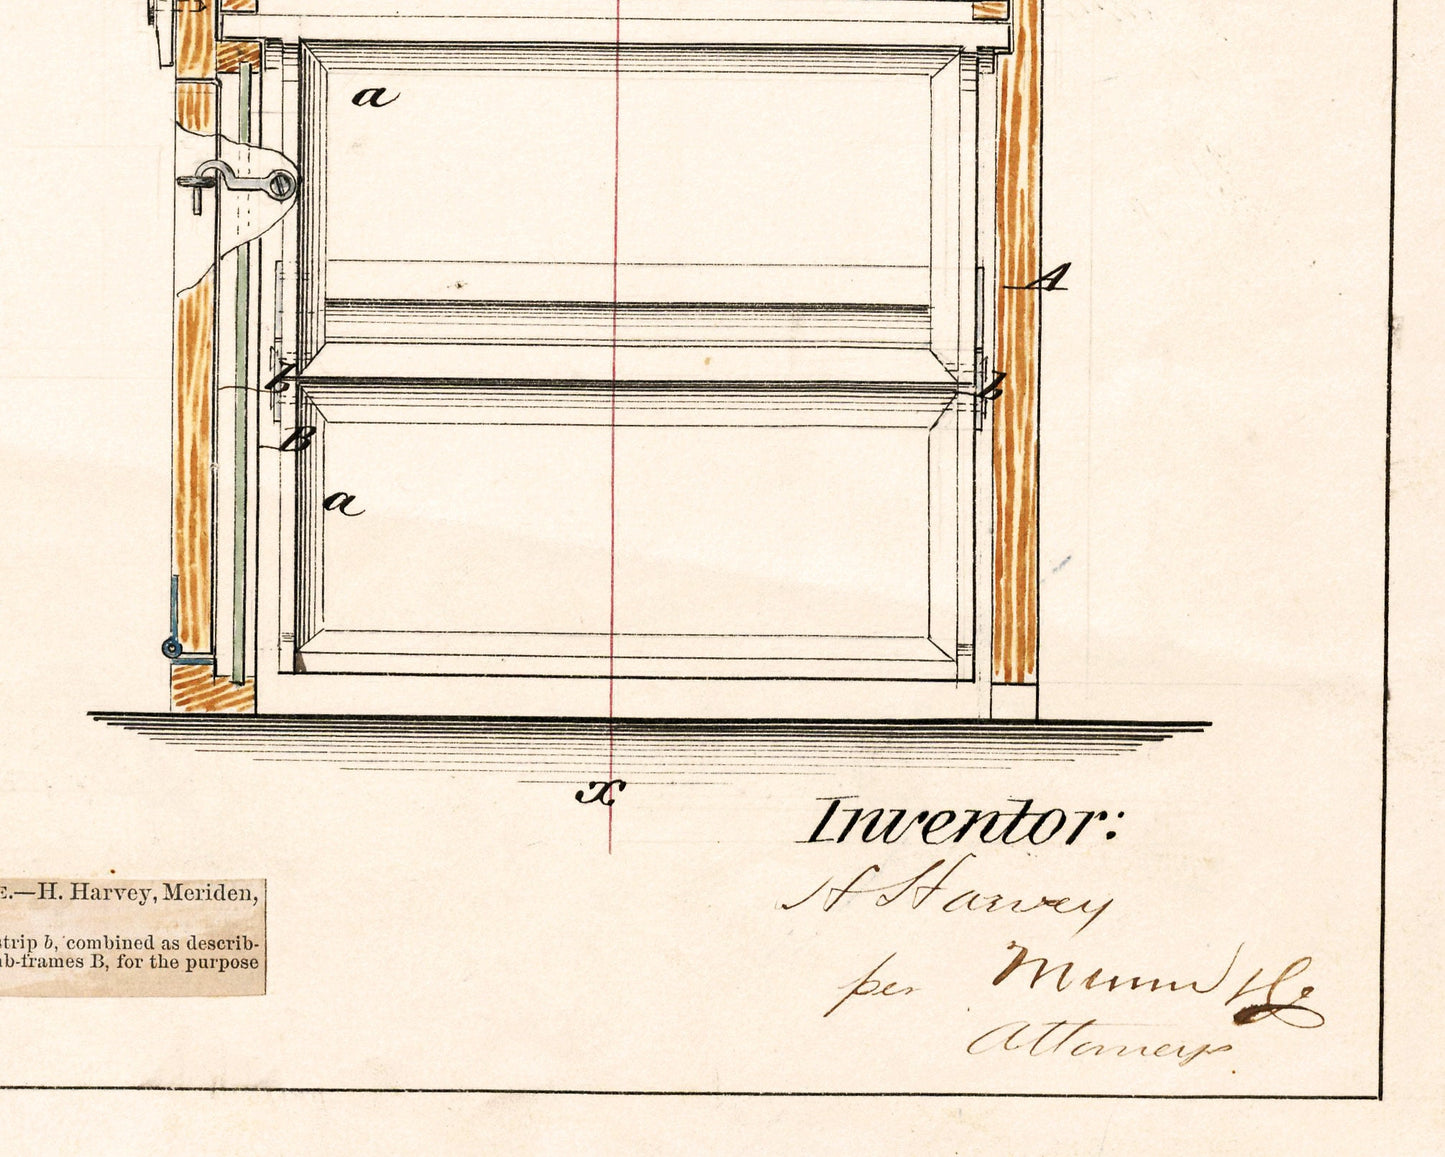 a
A
b
b
B
a
x
Inventor:
E.—H. Harvey, Meriden,
H Harvey
strip b, combined as describ-
ub-frames B, for the purpose
per Munn & Co
Attorneys